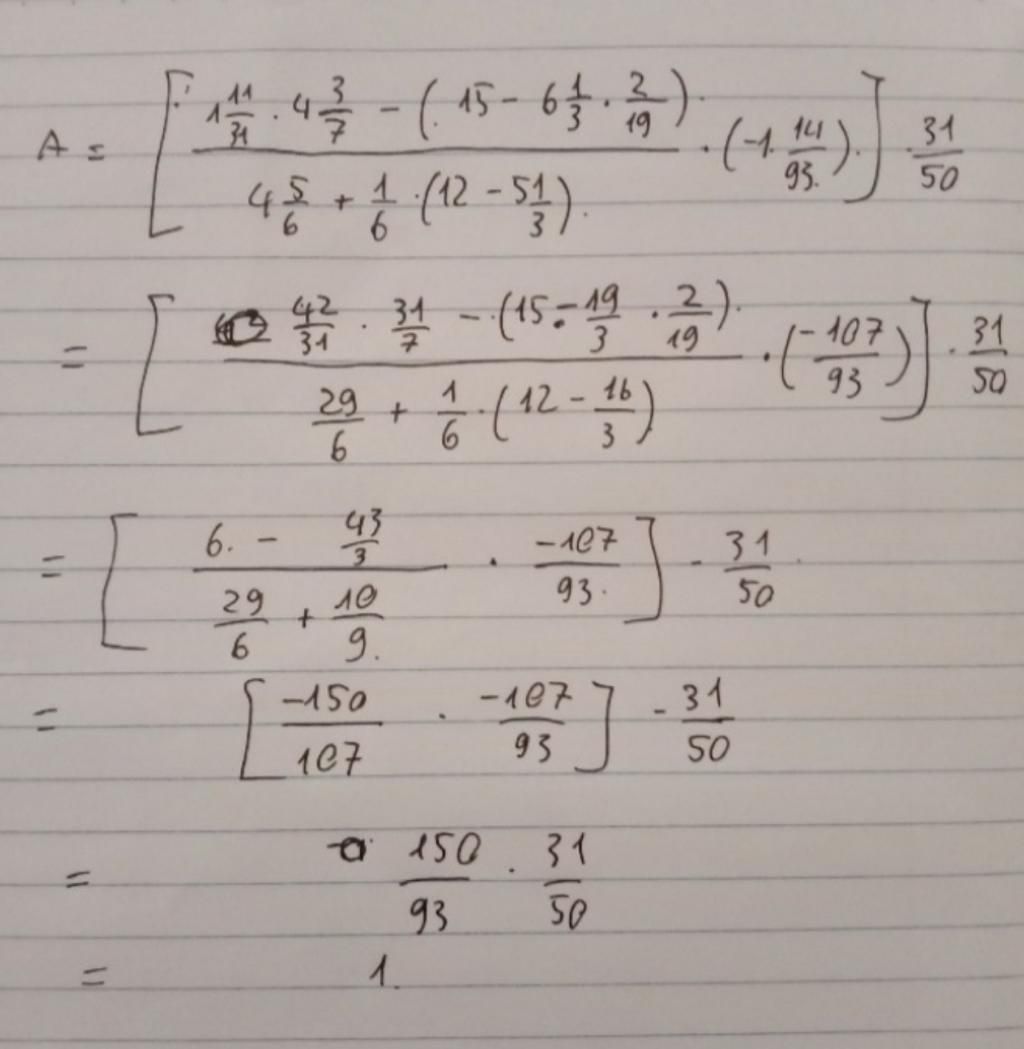 A = [ (1 11/31 · 4 3/7 - (15 - 6 1/3 · 2/19)) / (4 5/6 + 1/6 · (12 - 5 1/3)) · (-1 14/93) ] · 31/50
= [ (42/31 · 31/7 - (15 - 19/3 · 2/19)) / (29/6 + 1/6 · (12 - 16/3)) · (-107/93) ] · 31/50
= [ (6 - 43/3) / (29/6 + 10/9) · -107/93 ] - 31/50
= [ -150/107 · -107/93 ] - 31/50
= 150/93 · 31/50
= 1